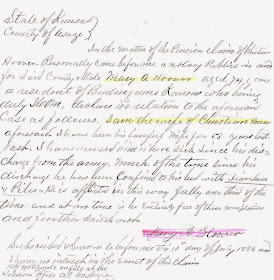 State of Kansas
County of Osage
In the matter of the Pension Claim of Christian
Hoover. Personally came before me a notary Public in and
for said County & State Mary A Hoover aged
a resident of Burlingame Kansas who being
duly Sworn, declares in relation to the aforesaid
Case as follows. I am the wife of Christian Hoover
aforesaid & have been his lawful wife for years last
Past. I have nursed him when Sick Since his dis-
charge from the army. Much of the time since his
discharge he has been Confined to his bed with
& Piles. He is afflicted in this way fully one third of the
time and at no time is he entirely free of these complaints
and further Saith not
Hoover
Subscribed & Sworn to before me this day of July 1886 and
I have no interest in the of this Claim